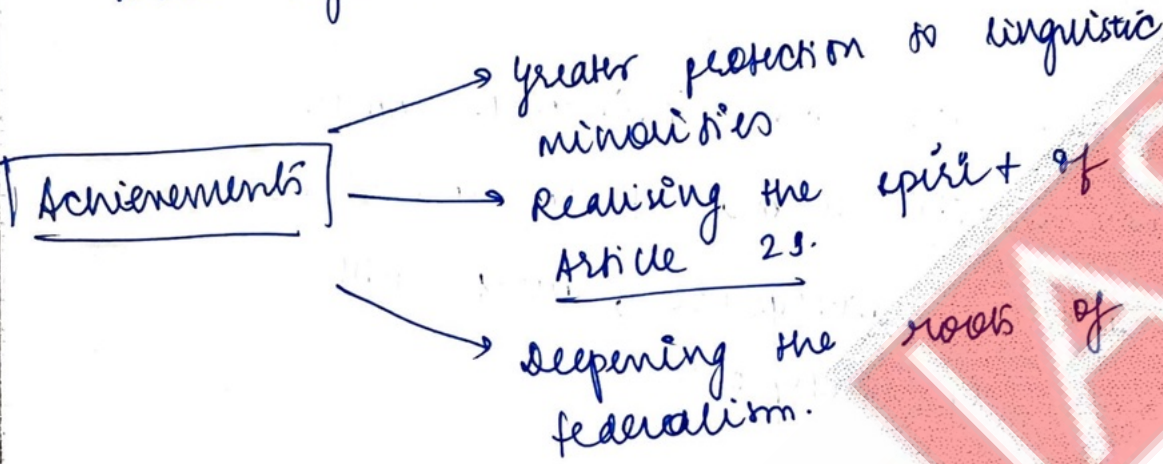 Achievements
Greater protection to linguistic
minorities
Realising the spirit of
Article 29.
Deepening the roots of
federalism.
IAS